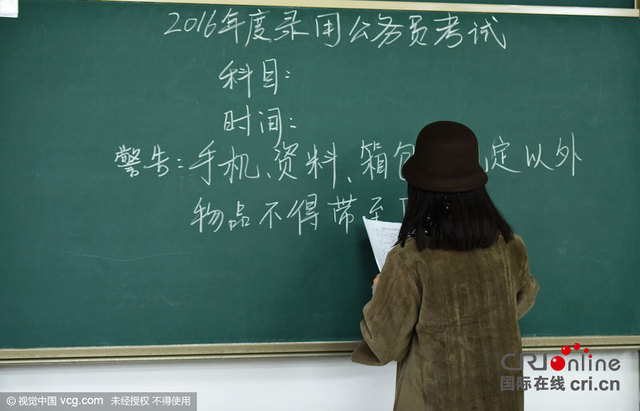 2016年度录用公务员考试
科目：
时间：
警告：手机、资料、箱包 定以外
物品不得带至
CRIonline
国际在线 cri.cn
©视觉中国 vcg.com 未经授权 不得使用